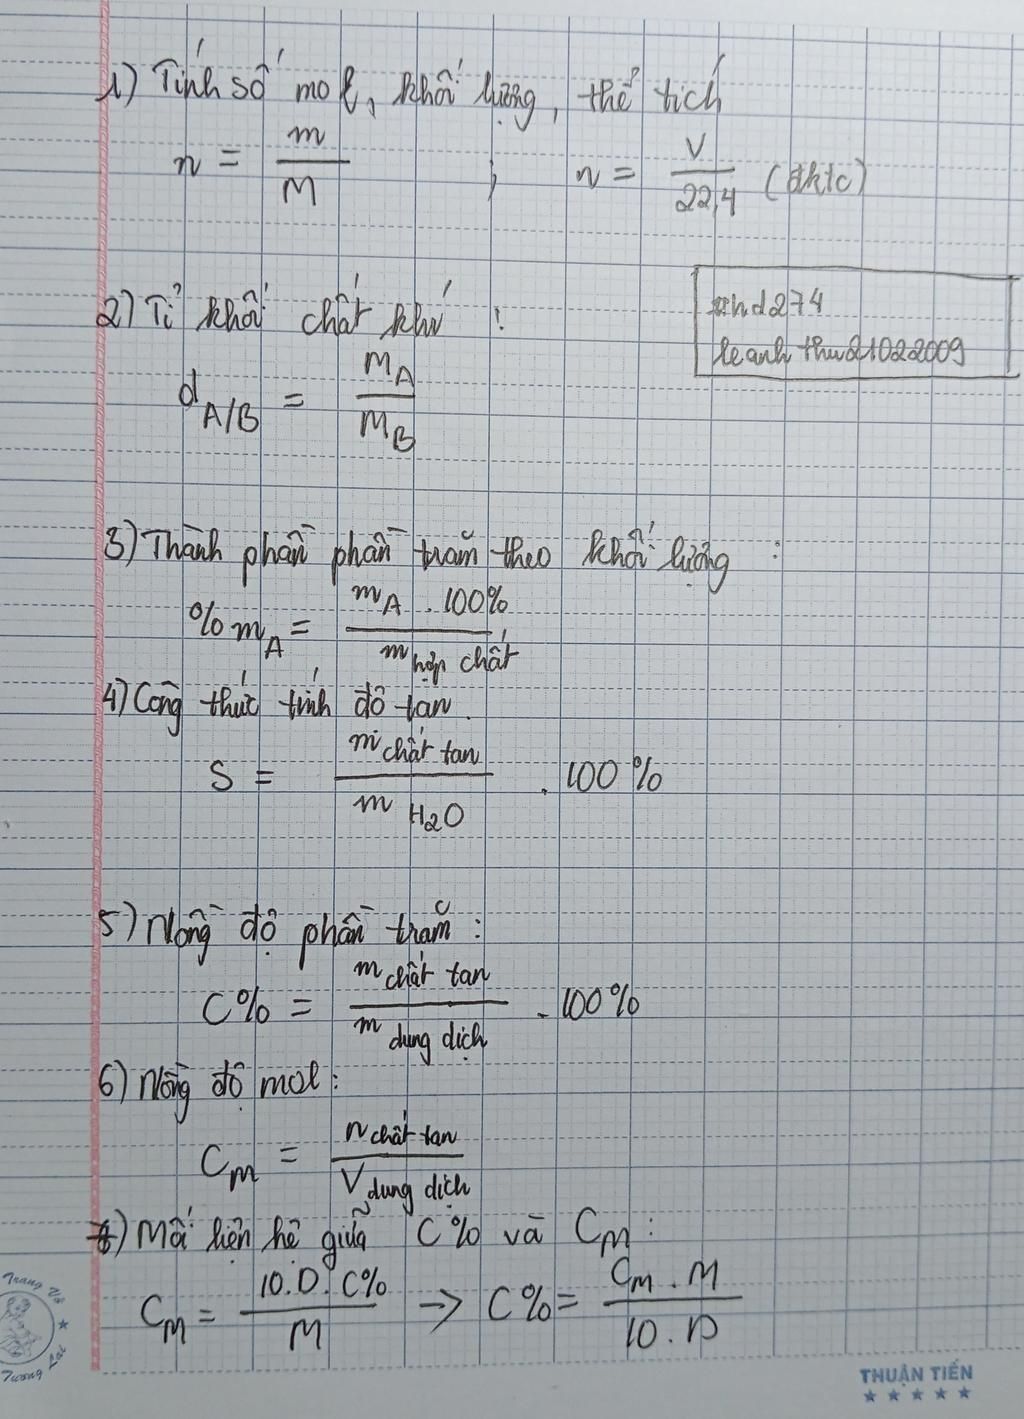 1) Tính số mol, khối lượng, thể tích
n = m/M ; n = V/22,4 (đktc)
2) Tỉ khối chất khí :
d A/B = M A / M B
#hd274
leanhthu21022009
3) Thành phần phần trăm theo khối lượng :
% m A = m A . 100% / m hợp chất
4) Công thức tính độ tan.
S = m chất tan / m H2O . 100%
5) Nồng độ phần trăm :
C% = m chất tan / m dung dịch . 100%
6) Nồng độ mol :
C M = n chất tan / V dung dịch
7) Mối liên hệ giữa C% và C M :
C M = 10.D.C% / M → C% = C M . M / 10.D
Trang Vở
Tương Lai
THUẬN TIẾN